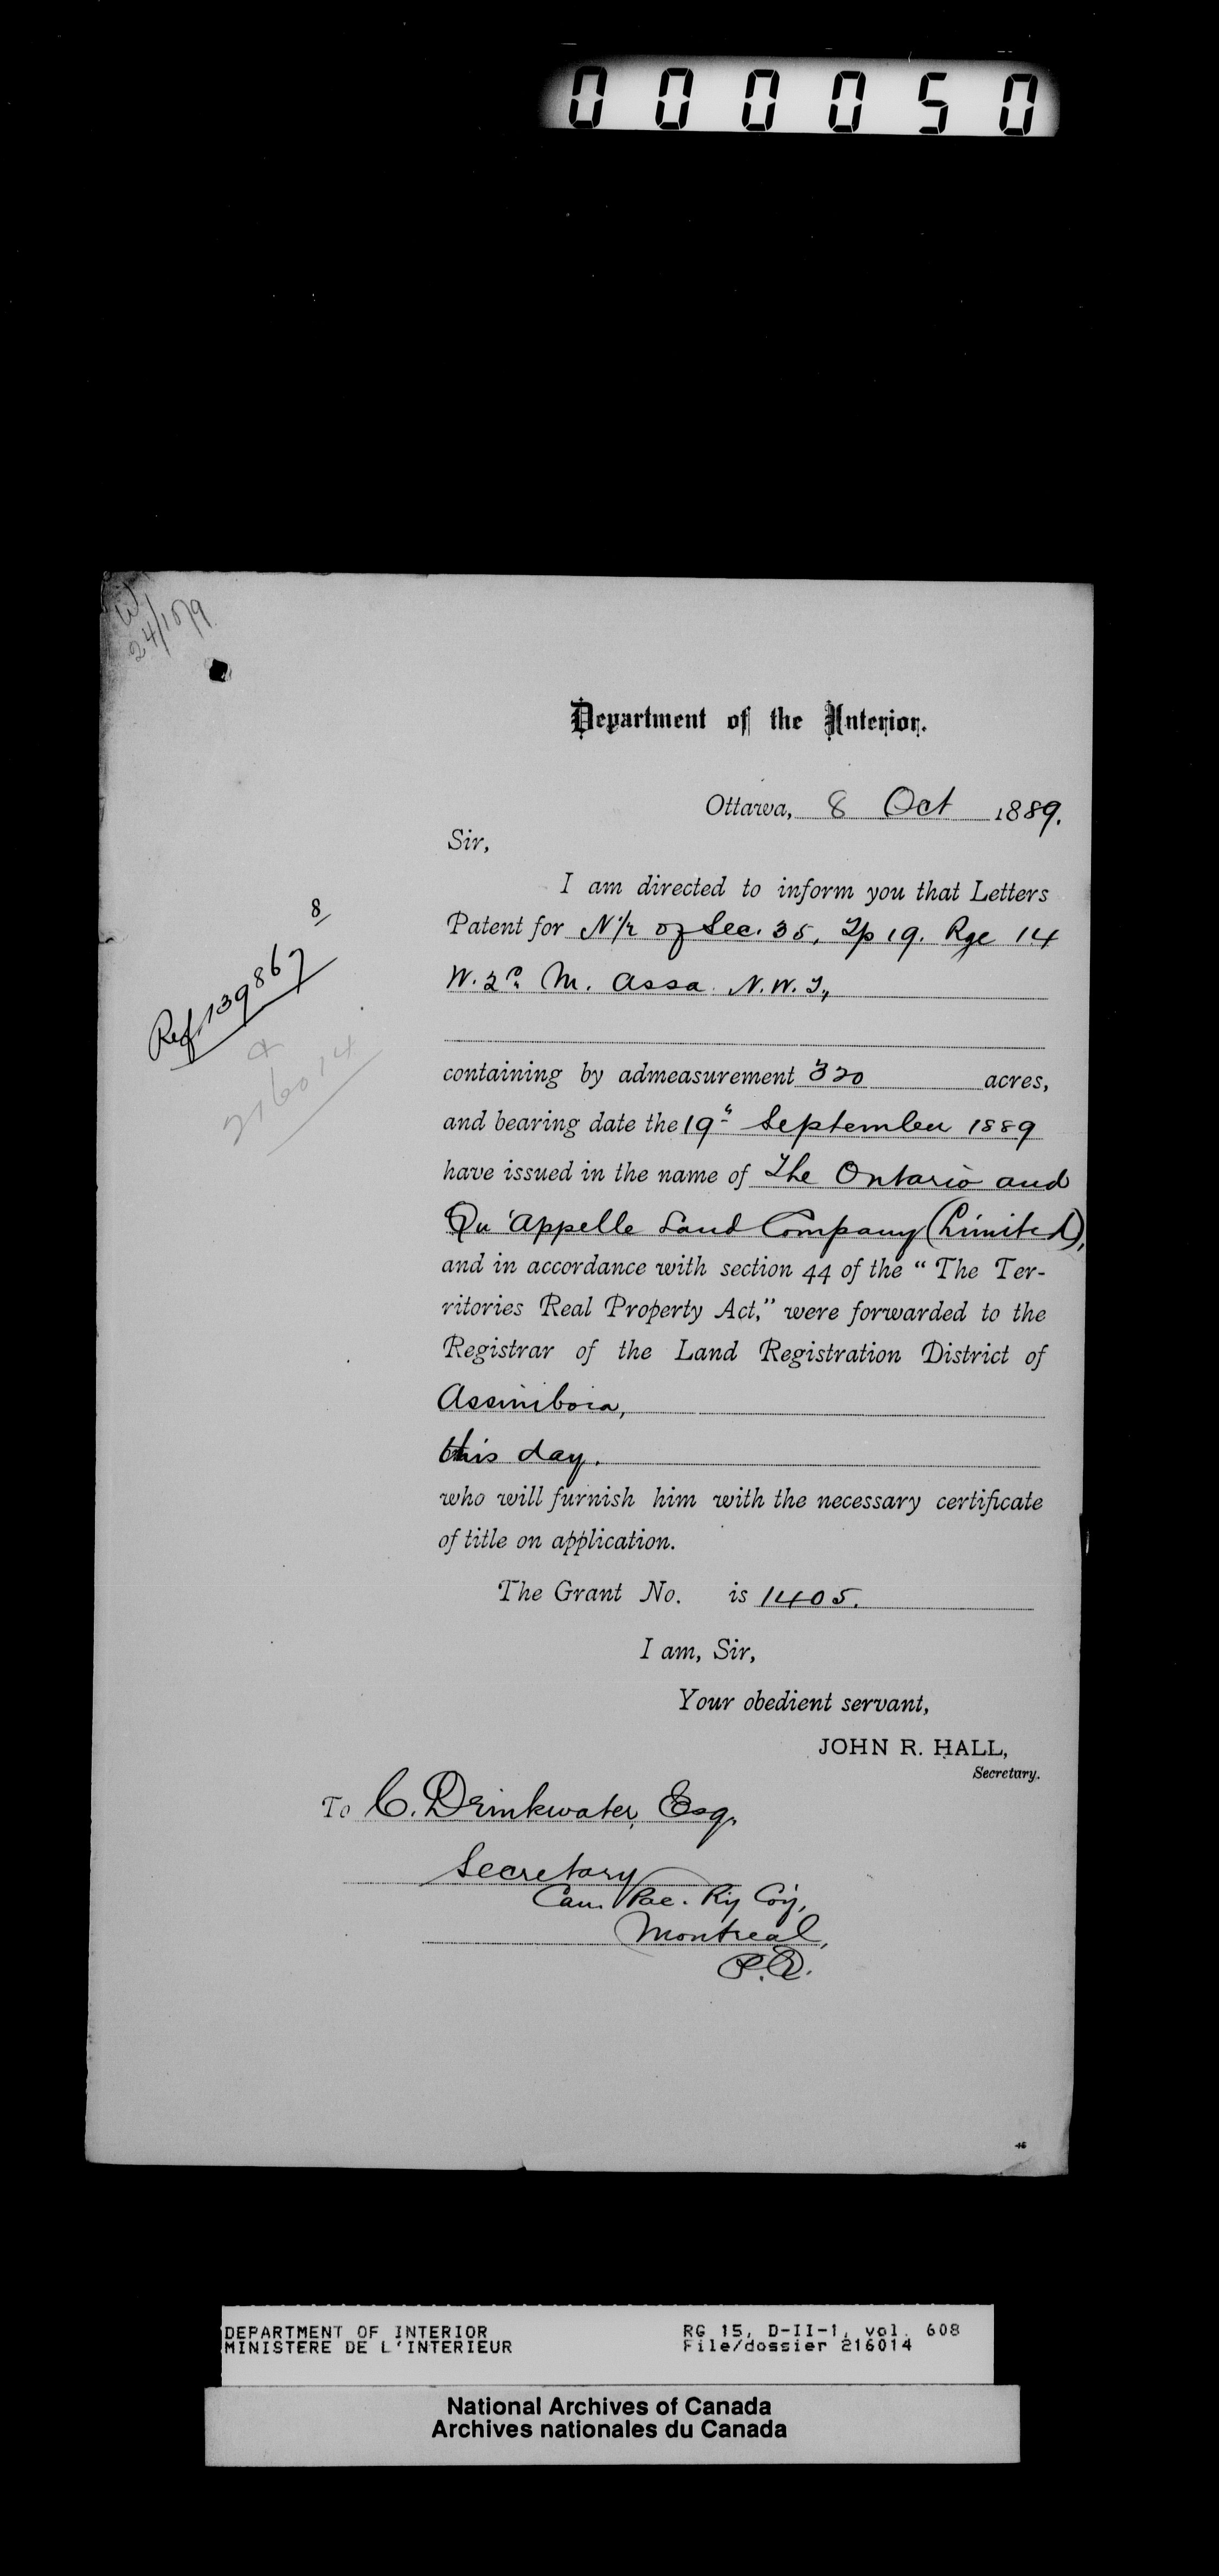 000050
24/10/9
Department of the Interior.
Ottawa, 8 Oct 1889.
Sir,
I am directed to inform you that Letters
Patent for N½ of Sec. 35, Tp 19. Rge 14
W. 2nd M. Assa. N.W.T.,
8
Ref 139867
&
216014
containing by admeasurement 320 acres,
and bearing date the 19th September 1889
have issued in the name of The Ontario and
Qu'Appelle Land Company (Limited),
and in accordance with section 44 of the “ The Ter-
ritories Real Property Act,” were forwarded to the
Registrar of the Land Registration District of
Assiniboia,
this day.
who will furnish him with the necessary certificate
of title on application.
The Grant No. is 1405.
I am, Sir,
Your obedient servant,
JOHN R. HALL,
Secretary.
To C. Drinkwater, Esq.
Secretary
Can. Pac. Ry Coy,
Montreal,
P.Q.
DEPARTMENT OF INTERIOR
MINISTERE DE L'INTERIEUR
RG 15, D-II-1, vol. 608
File/dossier 216014
National Archives of Canada
Archives nationales du Canada